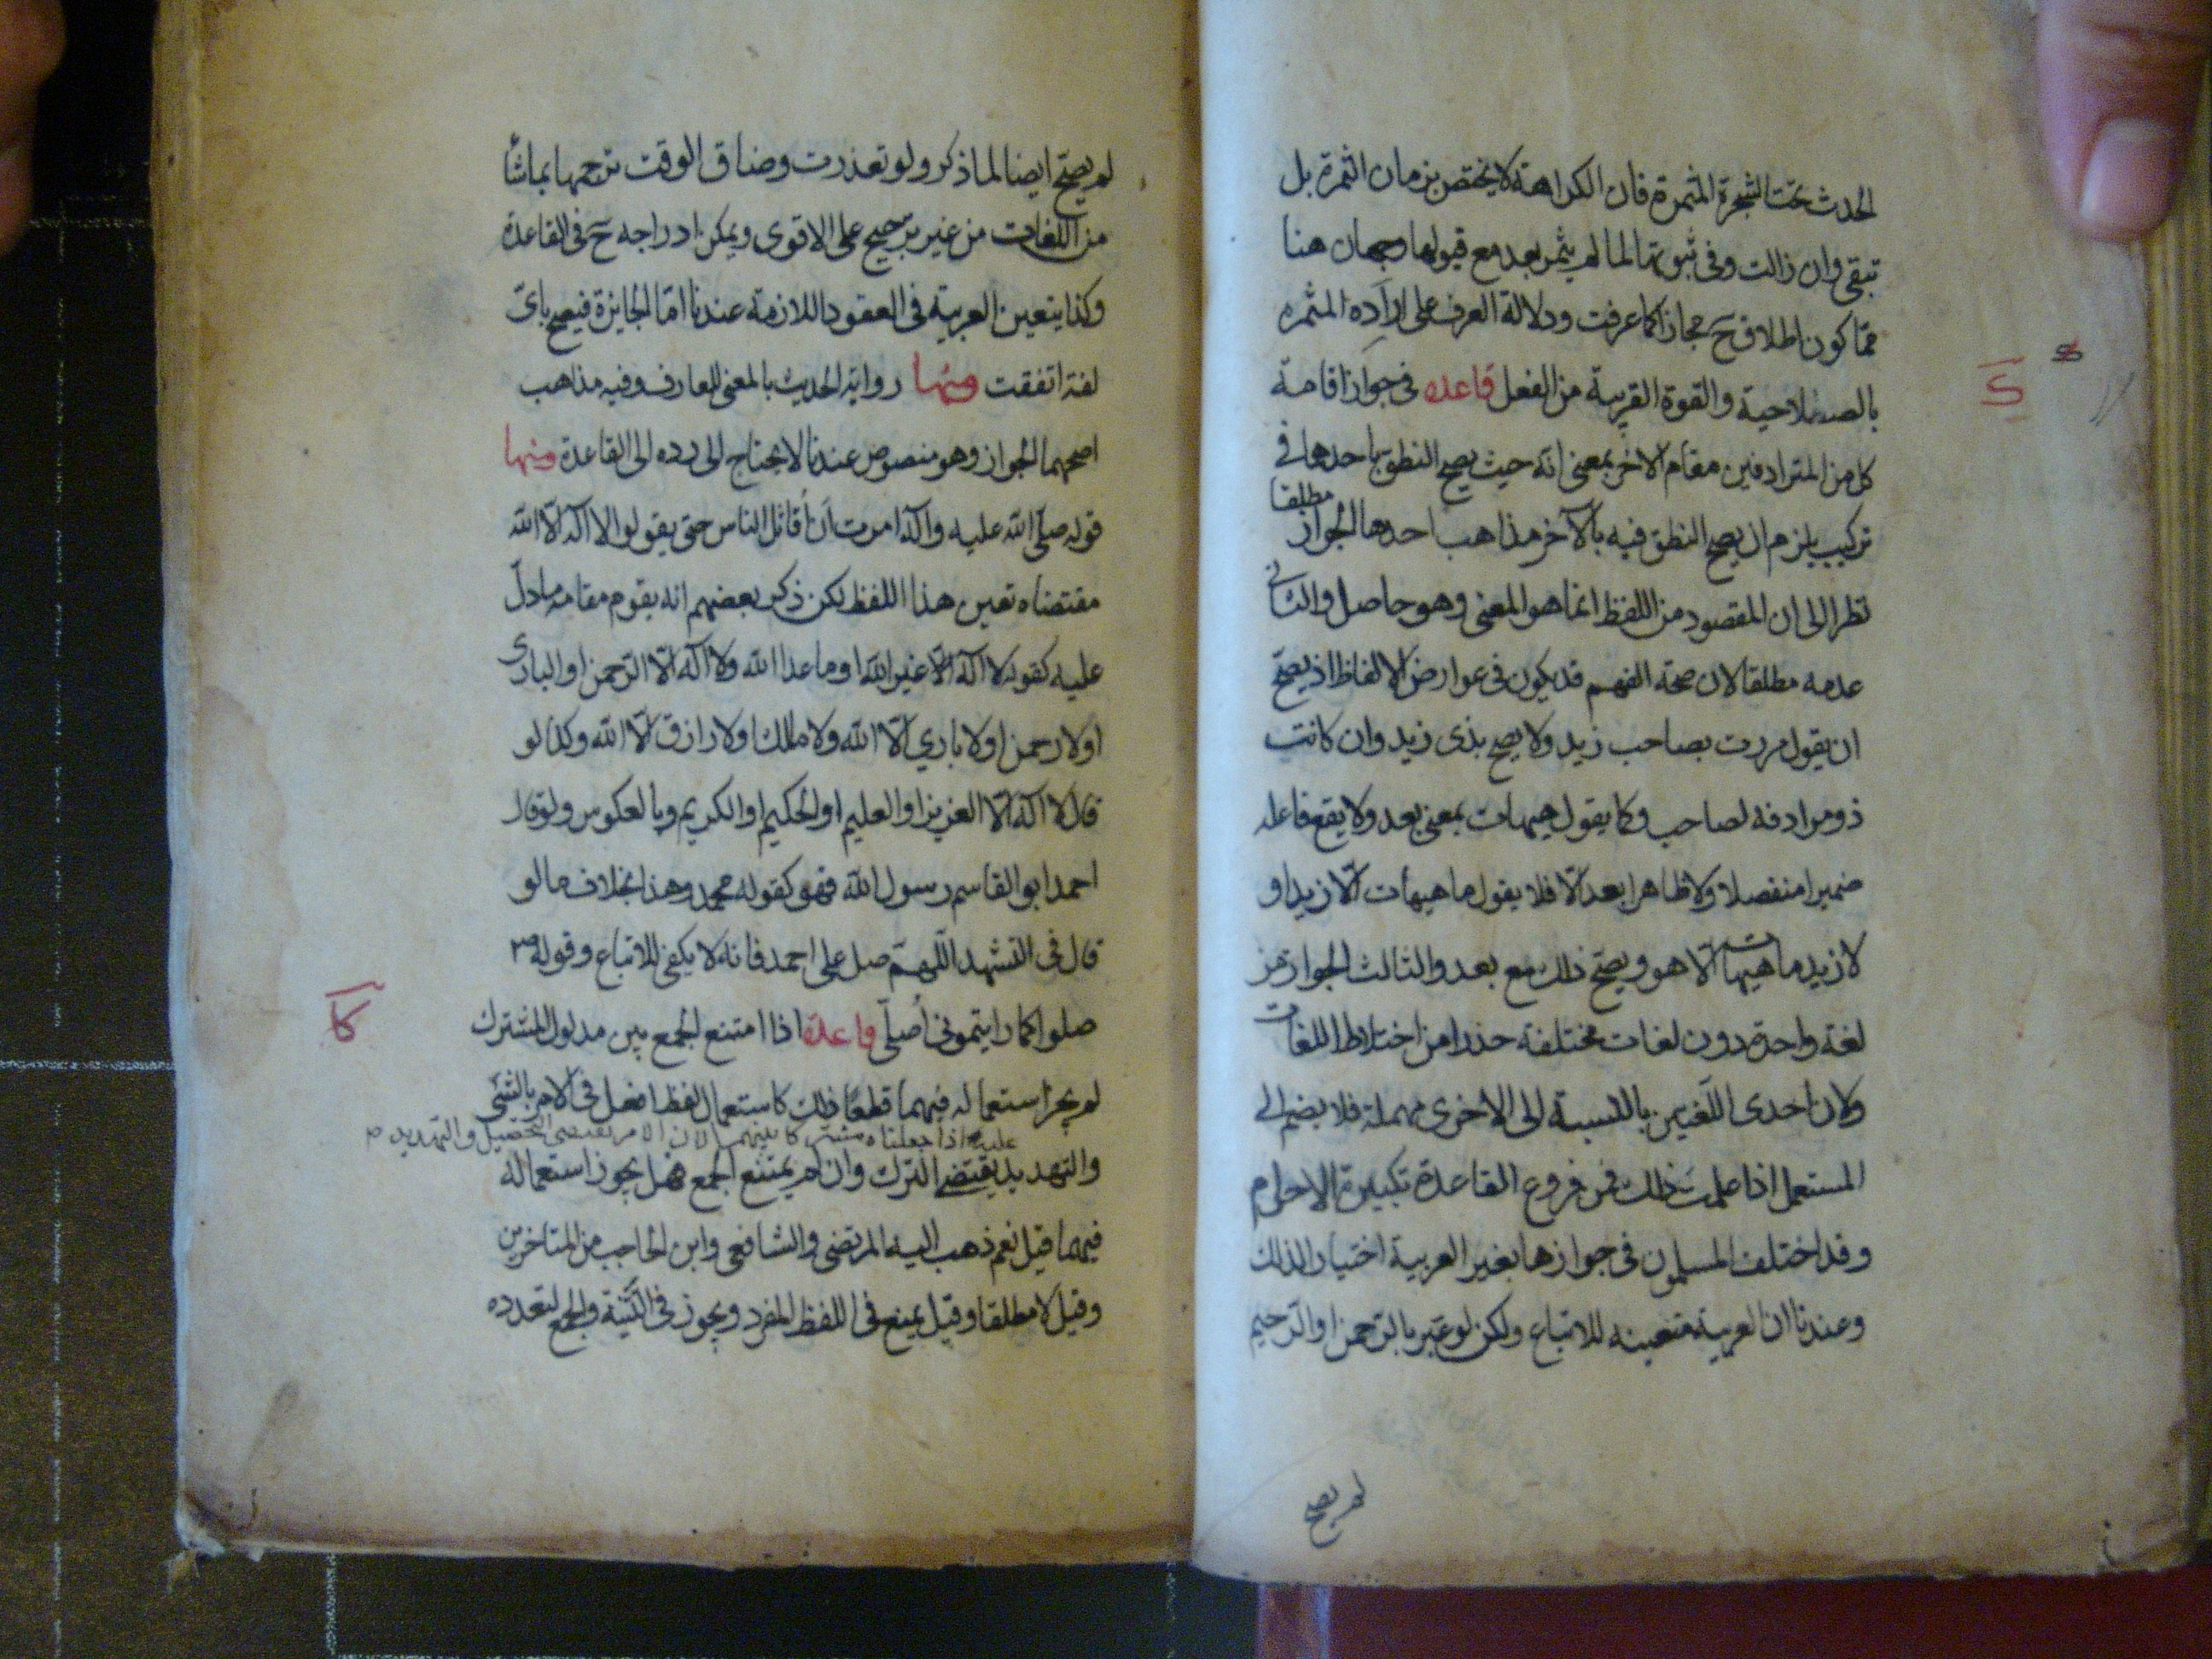 الحدث تحت الشجرة المثمرة فان الكراهة لا يختص بزمان الثمرة بل
تبقى وان زالت وفى ثبوتها لما لم يثمر بعد مع قبولها وجهان هنا
مما كون اطلاق ح مجازا كما عرفت ودلالة العرف على اراده المثمره
بالصلاحية والقوة القريبة من الفعل قاعده فى جواز اقامة
ك
كل من المترادفين مقام الاخر بمعنى انه حيث يصح النطق باحدها فى
تركيب يلزم ان يصح النطق فيه بالآخر مذاهب احدها الجواز مطلقا
نظرا الى ان المقصود من اللفظ انما هو المعنى وهو حاصل والثانى
عدمه مطلقا لان صحة الفهم قد يكون فى عوارض الالفاظ اذ يصح
ان يقول مررت بصاحب زيد ولا يصح بذى زيد وان كانت
ذو مرادفه لصاحب وكما يقول هيهات بمعنى بعد ولا يقع فاعله
ضميرا منفصلا ولا ظاهرا بعد الّا فلا يقول ما هيهات الّا زيد او
لا زيد ما هيهات الّا هو ويصح ذلك مع بعد والثالث الجواز من
لغة واحدة دون لغات مختلفة حذرا من اختلاط اللغات
وكان احدى اللغتين بالنسبة الى الاخرى مهملة فلا يضم الى
المستعمل اذا علمت ذلك فمن فروع القاعدة تكبيرة الاحرام
وقد اختلف المسلمون فى جوازها بغير العربية اختيارا لذلك
وعندنا ان العربية متعينه للاتباع ولكن لو عبّر بالرّحمن او الرّحيم
لم يصح
لم يصحّ ايضا لما ذكر ولو تعذرت وضاق الوقت ترجمها بما شاء
من اللغات من غير ترجيح على الاقوى ويمكن ادراجه ح فى القاعدة
وكذا يتعين العربية فى العقود اللازمة عندنا امّا الجايزة فيصح باىّ
لغة اتفقت ومنها رواية الحديث بالمعنى للعارف وفيه مذاهب
اصحهما الجواز وهو منصوص عندنا لا يحتاج الى رده الى القاعدة ومنها
قوله صلّى اللّه عليه وآله امرت أن أقاتل الناس حتى يقولوا لا اله الّا اللّه
مقتضاه تعين هذا اللفظ لكن ذكر بعضهم انه يقوم مقامه ما دلّ
عليه كقوله لا اله الّا غير اللّه او ما عدا اللّه ولا اله الّا الرّحمن او البارى
او لا رحمن او لا باري الّا اللّه ولا مالك او لا رازق الّا اللّه وكذا لو
قال لا اله الّا العزيز او العليم او الحكيم او الكريم وبالعكوس ولو قال
احمد ابو القاسم رسول اللّه فهو كقوله محمد وهذا بخلاف ما لو
قال فى التشهد اللّهمّ صل على احمد فانه لا يكفى للاتباع وقوله ص
صلوا كما رايتمونى أصلّى قاعدة اذا امتنع الجمع بين مدلول المشترك
كا
لم يجز استعماله فيهما قطعًا وذلك كاستعمال لفظ افعل فى الامر بالشئ
عليه اذا جعلناه مشتركا بينهما لان الامر يقتضى التحصيل والتهديد
والتهديد يقتضى الترك وان لم يمتنع الجمع فهل يجوز استعماله
فيهما قيل نعم ذهب اليه المرتضى والشافعى وابن الحاجب من المتاخرين
وقيل لا مطلقا وقيل يمنع فى اللفظ المفرد ويجوز فى التّثنية والجمع لتعدده